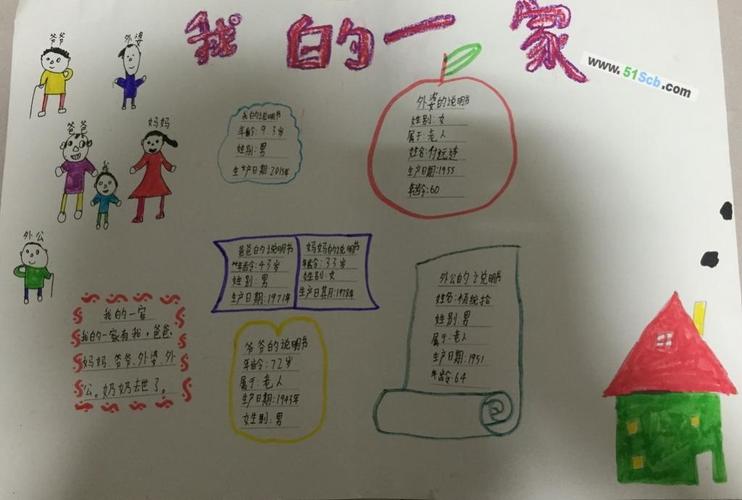 我的一家
www.51Scb.com
爷爷
外婆
爸爸
妈妈
外公
我的说明书
年龄:9.3岁
姓别:男
生产日期
外婆的说明书
姓别:女
属于:老人
姓名:
生产日期:1955
年龄:60
爸爸的说明书
年龄:43岁
姓别:男
生产日期:1971年
妈妈的说明书
年龄:33岁
姓别:女
生产日期:1978年
外公的说明书
姓名:
姓别:男
属于:老人
生产日期:1951
年龄:64
我的一家
我的一家有我,爸爸、
妈妈、爷爷、外婆、外
公。奶奶去世了。
爷爷的说明书
年龄:72岁
属于:老人
生产日期:1943年
女生别:男